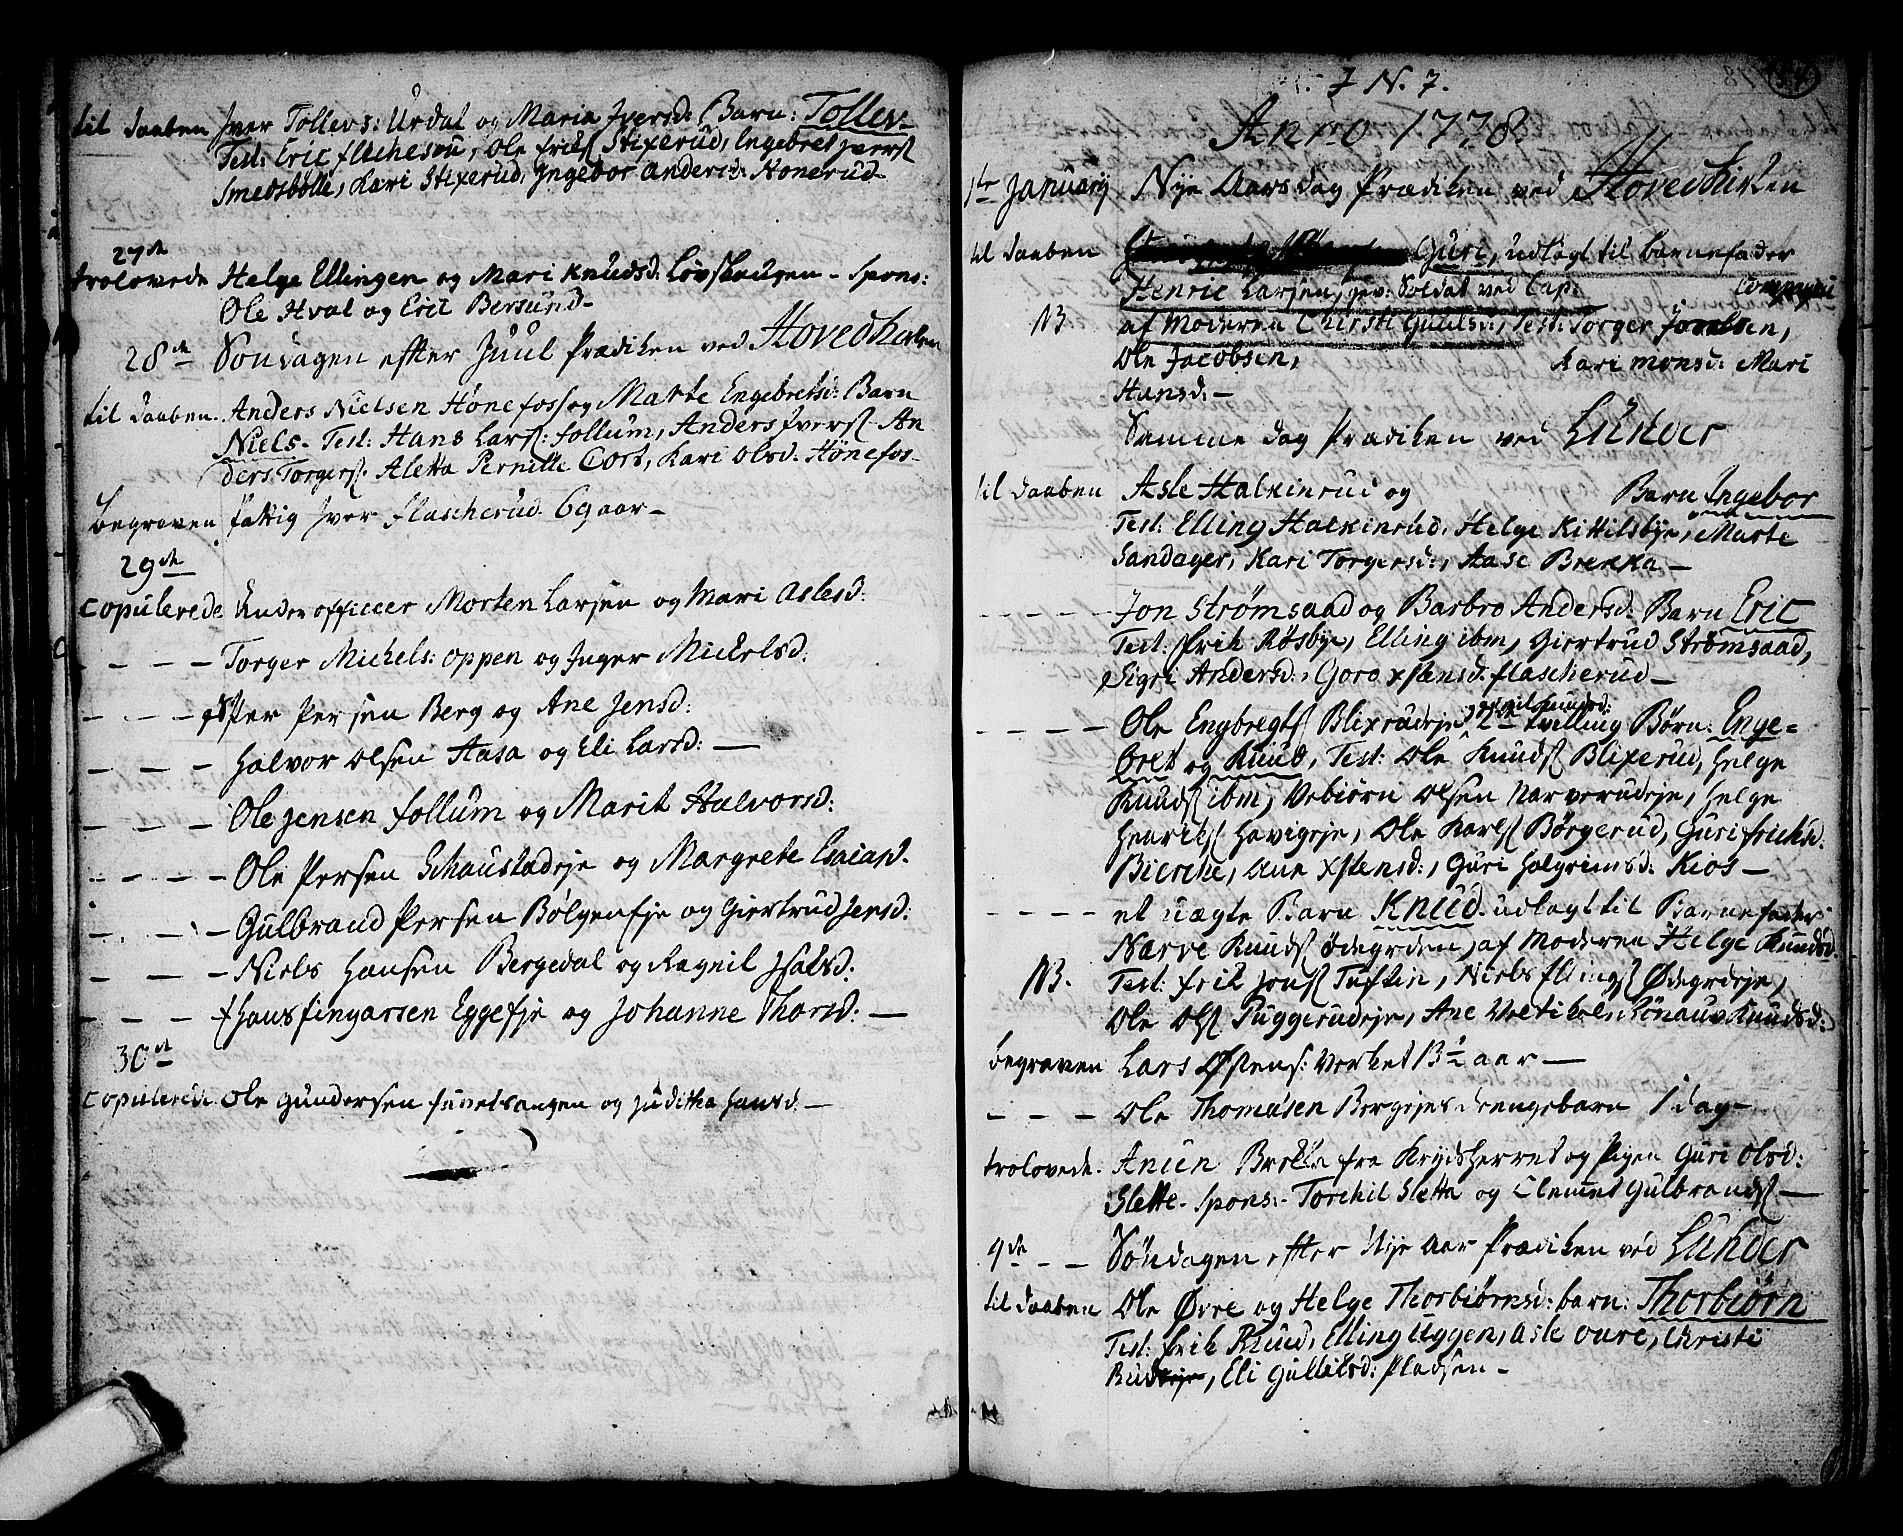 til daaben Iver Tollevs: Urdal og Maria Iversd: Barn: Tollev-
Test: Eric Flachesøu, Ole Friks Stixerud, Engebret Ivers
Smedsbølle, Kari Stixerud, Ingebor Andersd: Honerud
27de
trolovede Helge Ellingsen og Mari Knudsd: Løvshaugen - Spons:
Ole Hval og Eric Bersund-
28de Søndagen efter Juul Prædiken ved Hovedkirken
til daaben Anders Nielsen Hønefoss og Marte Engebretsd: Barn
Niels- Test: Hans Lars: Follum, Anders Ivers An
ders Torgers Aletta Pernille Cort, Kari Olsd: Hønefos-
begraven fattig Iver Flascherud 69 aar-
29de
Copulerede Under officeer Morten Larsen og Mari Aslesd:
- - - Torger Michels: Oppen og Inger Mickelsd:
- - - Per Persen Berg og Ane Jensd:
- - - Halvor Olsen Aasa og Eli Larsd: -
- - - Ole Jensen Follum og Marit Halvorsd:
- - - Ole Persen Schaustadeje og Margrete Esaiasd.
- - - Gulbrand Persen Bølgen Eje og Giertrud Jensd:
- - - Niels Hansen Bergedal og Ragnil
- - - Hans Fingarsen Eggeeje og Johanne Thorsd: -
30de
Copulerede Ole Gundersen og Juditha Hansd: -
J N. J.
Anno 1778.
1ste January Nye Aars dag Prædiken ved Hovedkirken
til daaben Guri, udlagt til barnefader
Henric Larsen, gev: Soldat ved Cap:
NB af Moderen Christi Test: Torger
Ole Jacobsen, Kari Monsd: Mari
Hansd: -
Samme dag Prædiken ved Lunder
til daaben Asle Halkinrud og Barn Ingebor
Test: Elling Halkinrud, Helge Kittilsbye, Marte
Sandager, Kari Torgersd:, Aase Brekka -
- - - - Jon Strømsaad og Barbro Andersd: Barn Eric
Test: Frik Røsbye, Elling ibm, Giertrud Strømsaad,
Sigri Andersd:, Goro Xstensd: Flascherud -
- - - - Ole Engbregts Blixrudeje, 2de tvilling Børn: Enge-
bret og Knud, Test: Ole Knuds Blixerud, Helge
Knuds ibm, Vebiørn Olsen Narverudeje, Helge
Henriks Havigeje, Ole Karls Børgerud, Guri Fricksd.
Bierche, Ane Xstensd:, Guri Halgrimsd: Kios -
- - - - et uægte Barn Knud udlagt til Barnefader
Narve Knuds Ødegrden, af Moderen Helge Knudsd.
NB. Test: Frik Jons Tuftin, Niels Ellings Ødegrdeje,
Ole Ols Puggerudeje, Ane Veltikol, Rønau Knudsd:
begraven Lars Østens: Verket 13½ aar -
- - - Ole Thomasen Bergejes drengebarn 1 dag-
trolovede. Anien Brekka fra Krydsherret og Pigen Guri Olsd:
Slette. Spons:- Torchil Sletta og Clemet Gulbrands -
4de - - Søndagen efter Nye Aar Prædiken ved Lunder
til daaben Ole Øvre og Helge Thorbiørnsd: barn: Thorbiørn
Test: Frik Ruud, Elling Uggen, Asle Øvre, Christi
Eli Gulliksd: Pladsen -